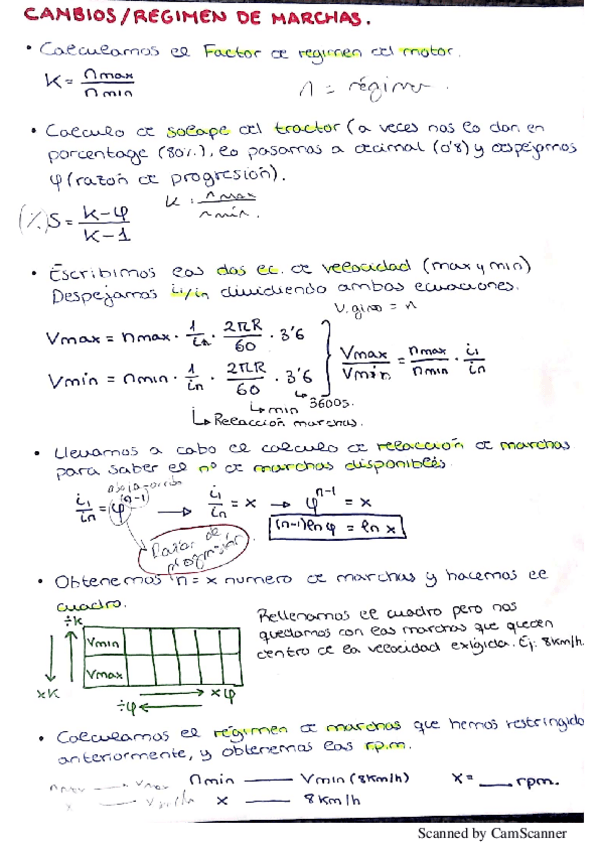 CAMBIOS/RÉGIMEN DE MARCHAS.
• Calculamos el Factor de régimen del motor.
K = nmax / nmin
n = régimen.
• Calculo de solape del tractor (a veces nos lo dan en
porcentage (80%), lo pasamos a decimal (0'8) y despejamos
φ (razón de progresión).
K = nmax / nmin.
(%) S = K-φ / K-1
• Escribimos las dos ec. de velocidad (max y min)
Despejamos i1/in dividiendo ambas ecuaciones.
V. giro = n
Vmax = nmax · 1/in · 2πR/60 · 3'6
Vmin = nmin · 1/in · 2πR/60 · 3'6
Vmax/Vmin = nmax/nmin · i1/in
↳ min ↳ 3600s.
↳ Relacción marchas.
• Llevamos a cabo el calculo de relacción de marchas
para saber el nº de marchas disponibles.
i1/in = φ^(n-1) → i1/in = x → φ^n-1 = x
(n-1)lnφ = ln x
Razón de
progresión
• Obtenemos n = x numero de marchas y hacemos el
cuadro.
÷K
Vmin
Vmax
xK
xφ
÷φ
Rellenamos el cuadro pero nos
quedamos con las marchas que queden
dentro de la velocidad exigida. Ej: 8Km/h.
• Calculamos el régimen de marchas que hemos restringido
anteriormente, y obtenemos las r.p.m.
nmax — Vmax
nmin — Vmin (8Km/h)
x = __ rpm.
x — 8Km/h
Scanned by CamScanner